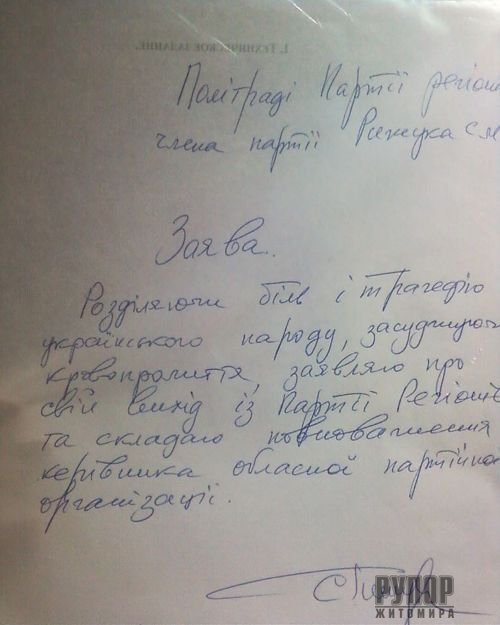 1. ТЕХНИЧЕСКОЕ ЗАДАНИЕ.
Політраді Партії регіон
члена партії Рижука С.М
Заява.
Розділяючи біль і трагедію
українського народу, засуджуюч
кровопролиття, заявляю про
свій вихід із Партії Регіонів
та складаю повноваження
керівника обласної партійно
організації.
РУПОР
ЖИТОМИРА